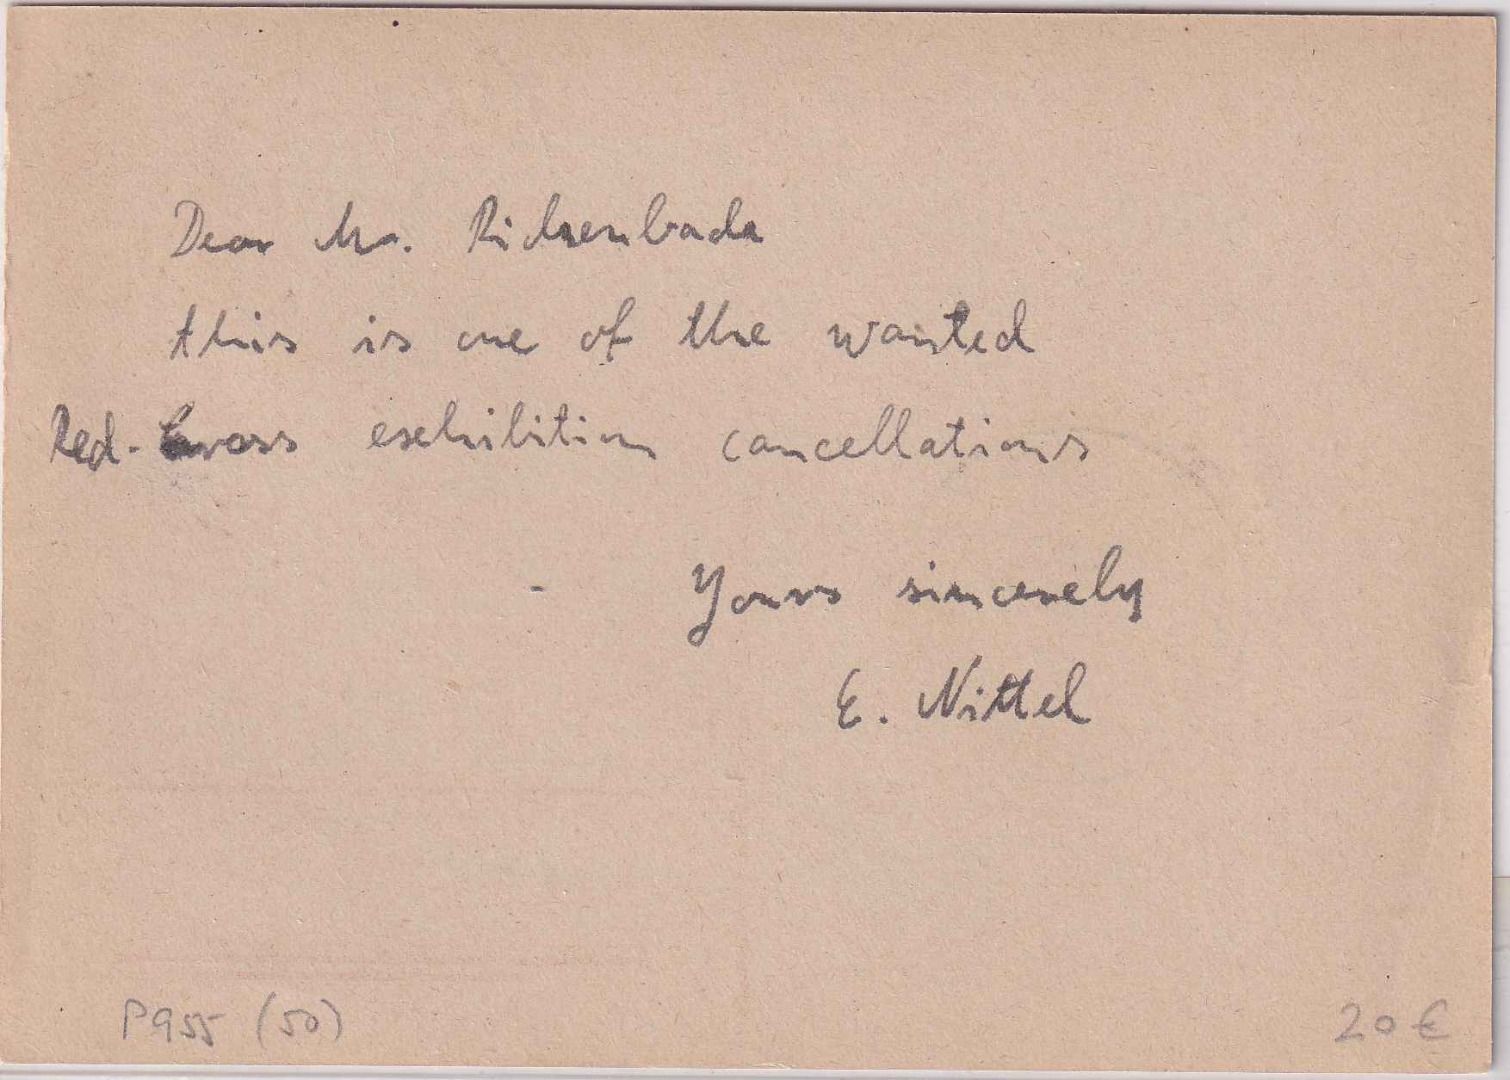 Dear Mr. Rickenbada
this is one of the wanted
Red-Cross exhibition cancellations
Yours sincerely
E. Nittel
P955 (50)
20 €